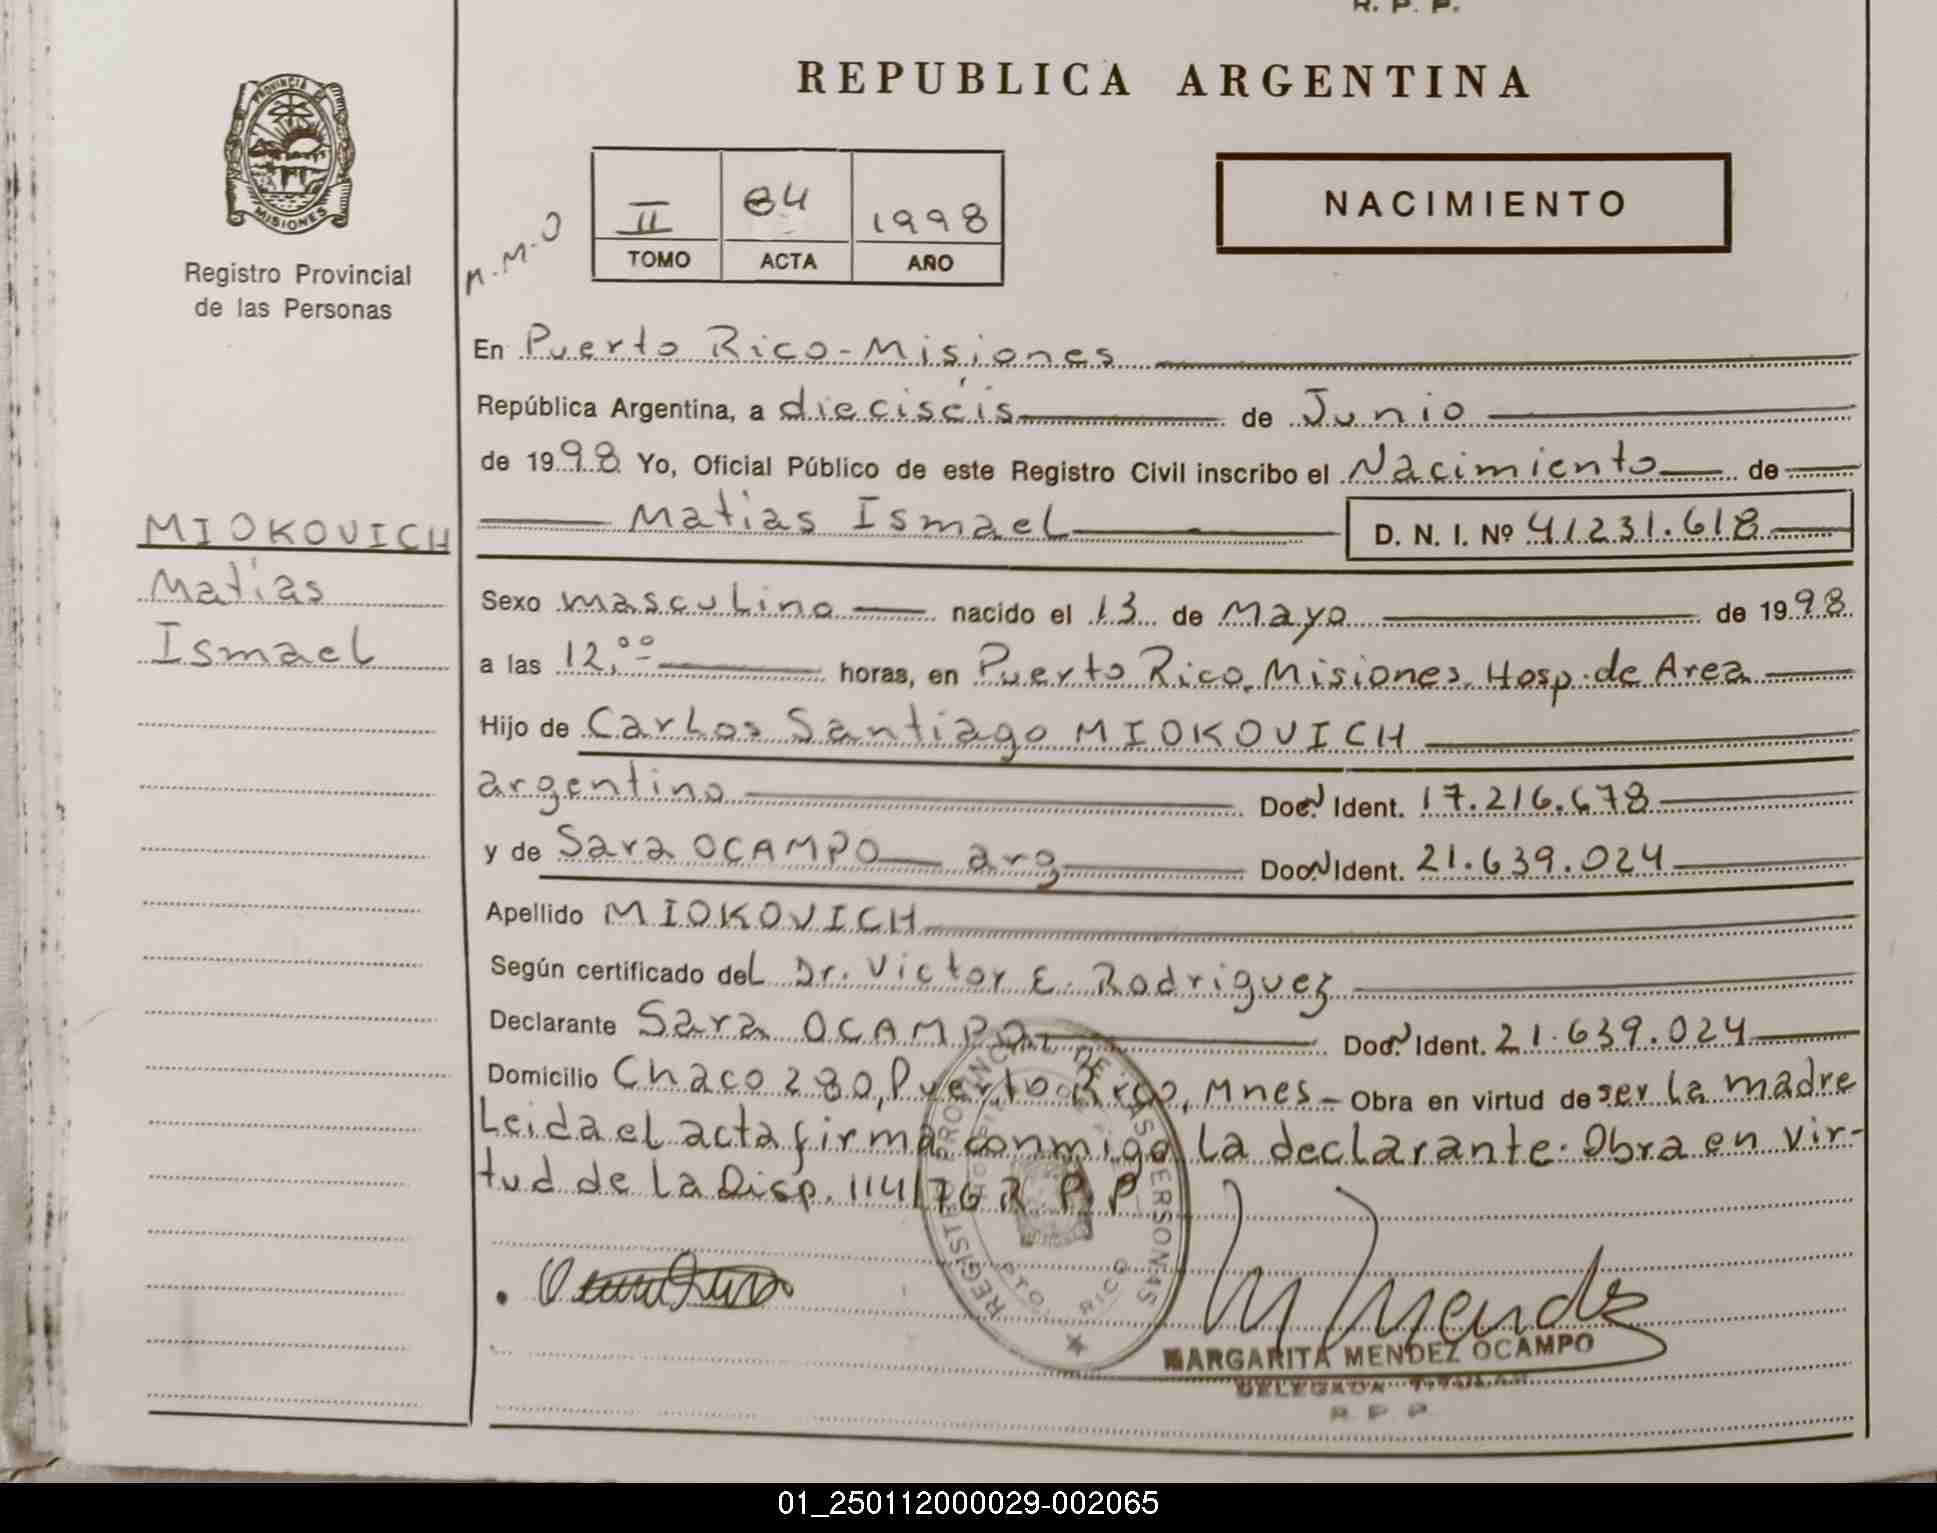 R. P. P.
REPUBLICA ARGENTINA
PROVINCIA DE
MISIONES
Registro Provincial
de las Personas
M.M.O
II 84 1998
TOMO ACTA AÑO
NACIMIENTO
En Puerto Rico - Misiones
República Argentina, a dieciséis de Junio
de 1998 Yo, Oficial Público de este Registro Civil inscribo el Nacimiento de
Matias Ismael D. N. I. Nº 41231.618
MIOKOVICH
Matías
Ismael
Sexo masculino nacido el 13 de Mayo de 1998
a las 12,00 horas, en Puerto Rico, Misiones, Hosp. de Area
Hijo de Carlos Santiago MIOKOVICH
argentino Doc. Ident. 17.216.678
y de Sara OCAMPO arg Doc. Ident. 21.639.024
Apellido MIOKOVICH
Según certificado del Dr. Victor E. Rodriguez
Declarante Sara OCAMPO Doc. Ident. 21.639.024
Domicilio Chaco 280, Puerto Rico, Mnes - Obra en virtud de ser la madre
Leida el acta firma conmigo la declarante. Obra en vir-
tud de la Disp. 114/76 R. P. P
REGISTRO PROVINCIAL DE LAS PERSONAS
PTO. RICO
M Mendez
MARGARITA MENDEZ OCAMPO
DELEGADA TITULAR
R. P. P.
01_250112000029-002065